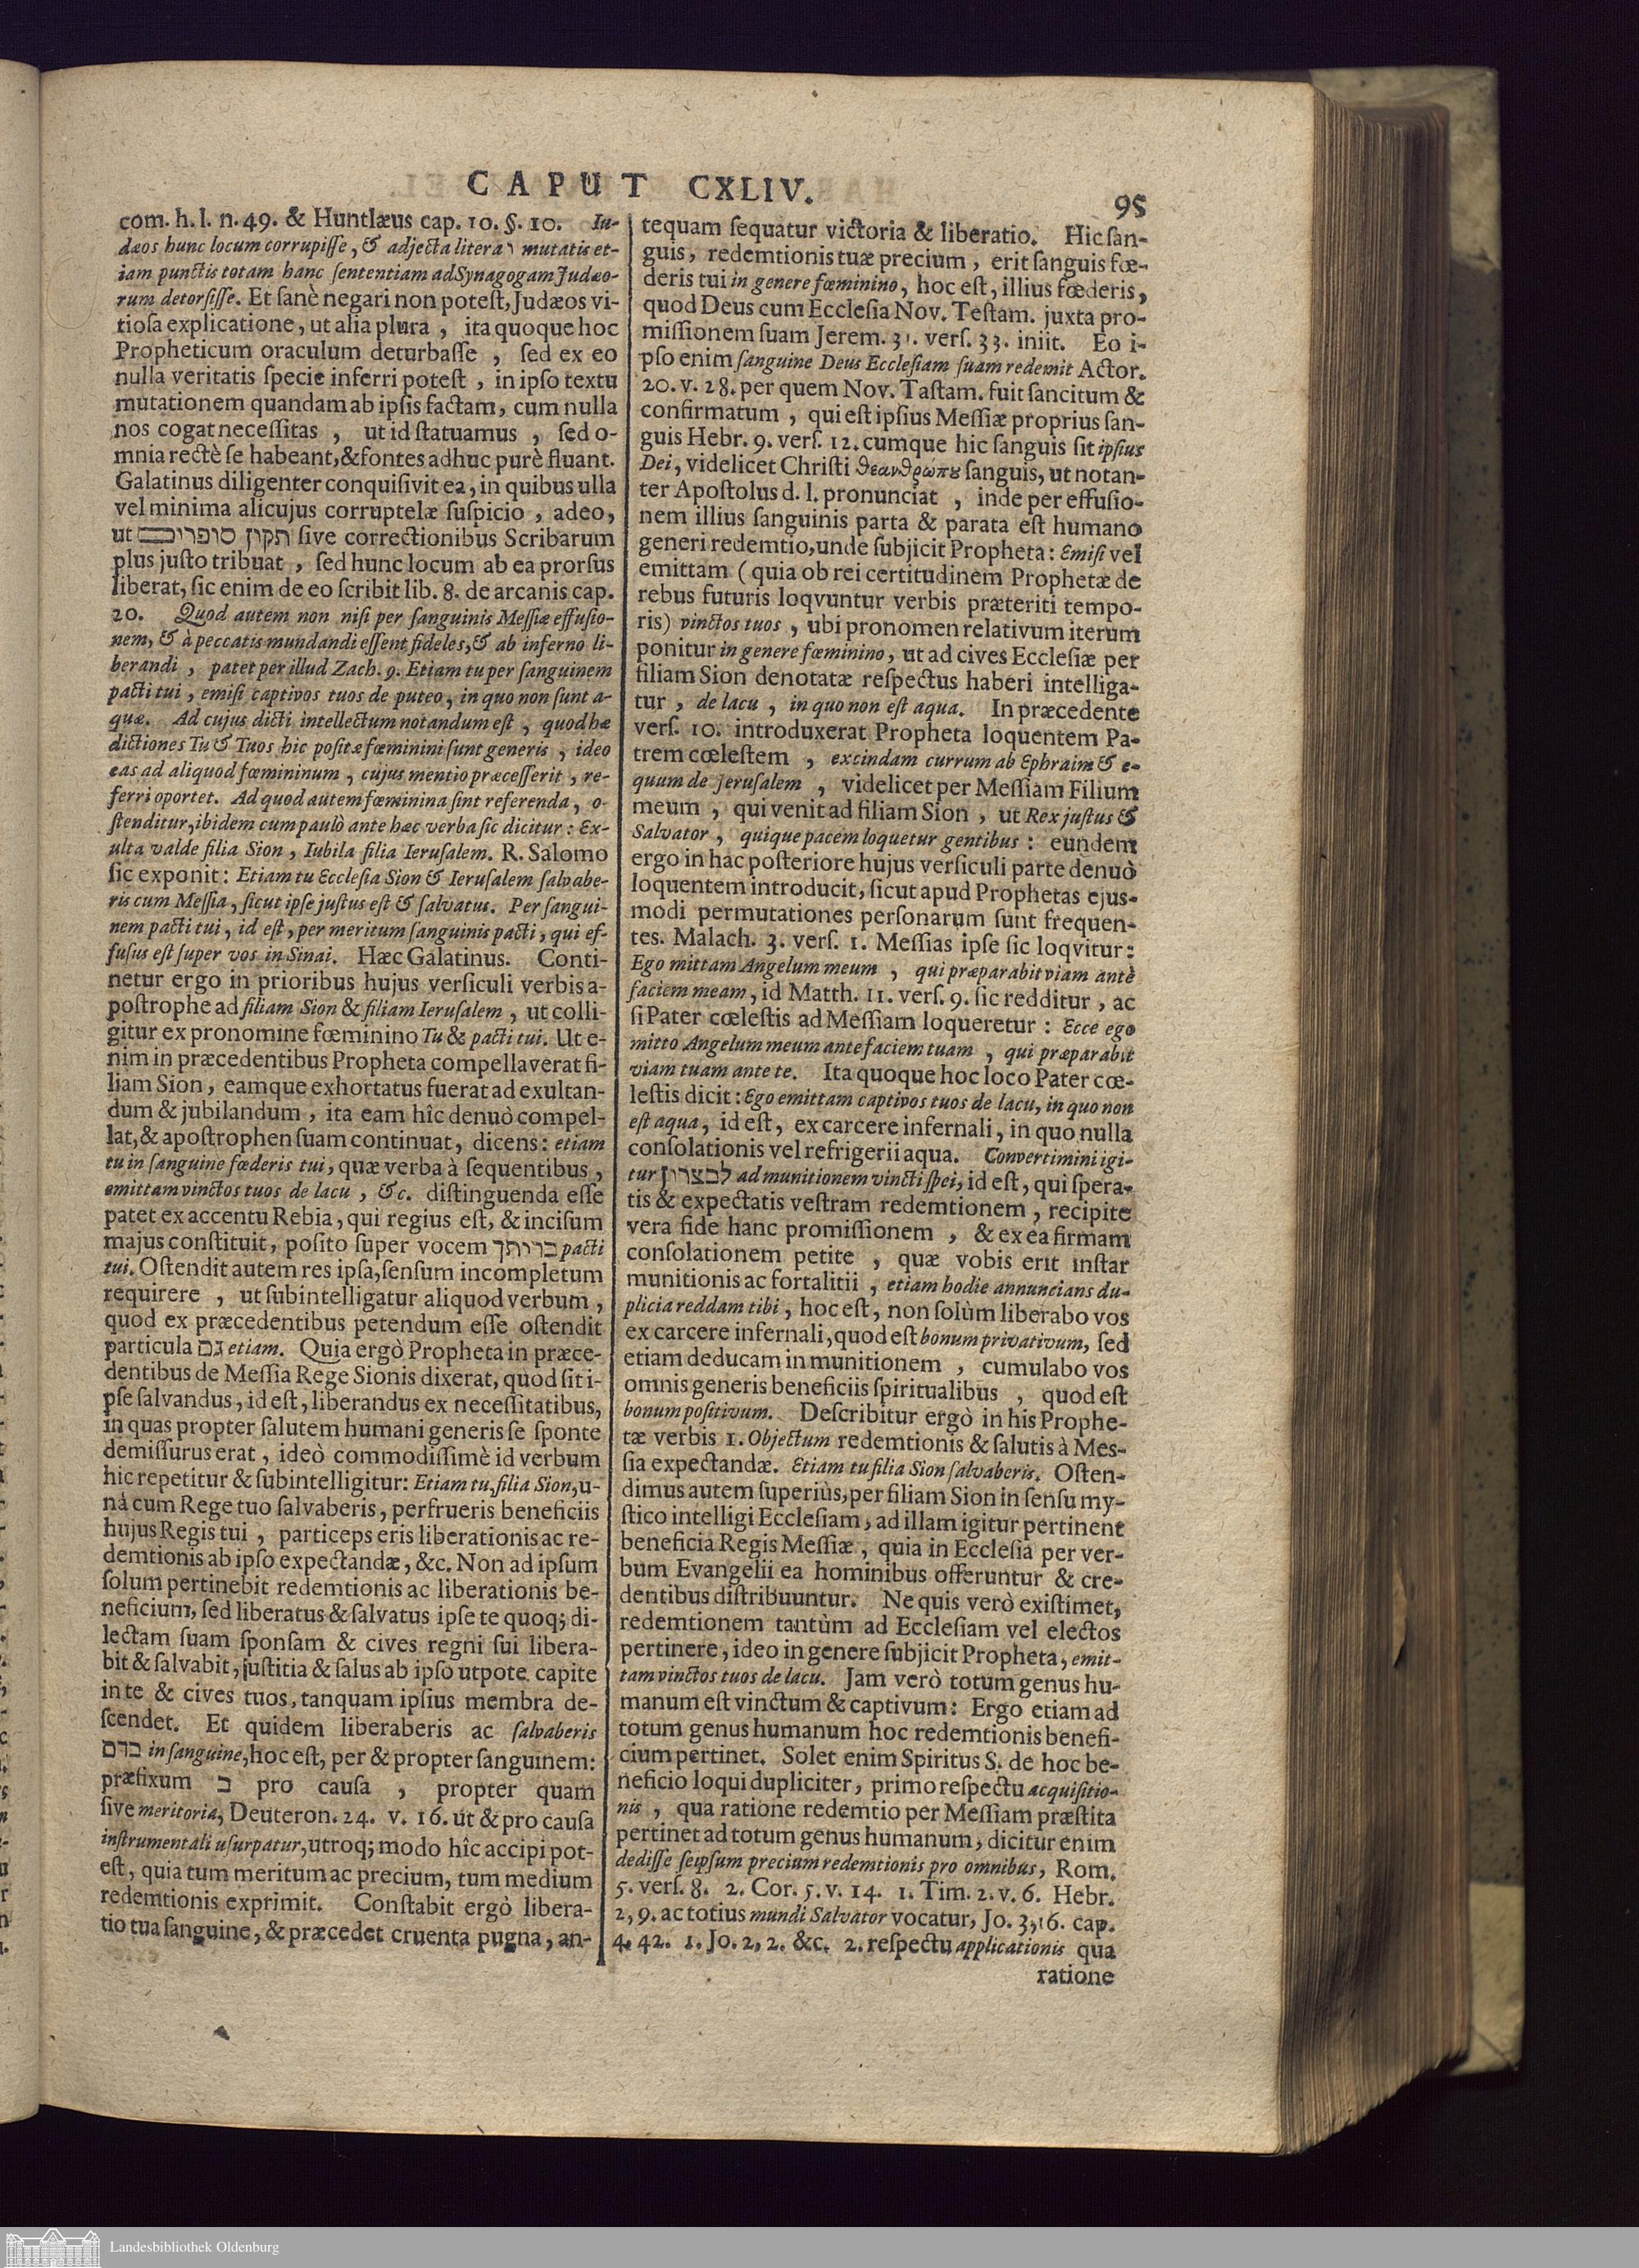 CAPUT CXLIV.
95
com. h. l. n. 49. & Huntlæus cap. 10. §. 10. Iu-
dæos hunc locum corrupiſſe, & adjecta litera ו mutatis et-
iam punctis totam hanc ſententiam ad Synagogam Judæo-
rum detorſiſſe. Et ſanè negari non poteſt, Judæos vi-
tioſa explicatione, ut alia plura, ita quoque hoc
Propheticum oraculum deturbaſſe, ſed ex eo
nulla veritatis ſpecie inferri poteſt, in ipſo textu
mutationem quandam ab ipſis factam, cum nulla
nos cogat neceſſitas, ut id ſtatuamus, ſed o-
mnia rectè ſe habeant, & fontes adhuc purè fluant.
Galatinus diligenter conquiſivit ea, in quibus ulla
vel minima alicujus corruptelæ ſuſpicio, adeo,
ut תקון סופרים ſive correctionibus Scribarum
plus juſto tribuat, ſed hunc locum ab ea prorſus
liberat, ſic enim de eo ſcribit lib. 8. de arcanis cap.
20. Quod autem non niſi per ſanguinis Meſſiæ effuſio-
nem, & à peccatis mundandi eſſent fideles, & ab inferno li-
berandi, patet per illud Zach. 9. Etiam tu per ſanguinem
pacti tui, emiſi captivos tuos de puteo, in quo non ſunt a-
quæ. Ad cujus dicti intellectum notandum eſt, quod hæ
dictiones Tu & Tuos hic poſitæ fœminini ſunt generis, ideo
eas ad aliquod fœmininum, cujus mentio præceſſerit, re-
ferri oportet. Ad quod autem fœminina ſint referenda, o-
ſtenditur, ibidem cum paulò ante hæc verba ſic dicitur: Ex-
ulta valde filia Sion, Iubila filia Ieruſalem. R. Salomo
ſic exponit: Etiam tu Eccleſia Sion & Ieruſalem ſalvabe-
ris cum Meſſia, ſicut ipſe juſtus eſt & ſalvatus. Per ſangui-
nem pacti tui, id eſt, per meritum ſanguinis pacti, qui ef-
fuſus eſt ſuper vos in Sinai. Hæc Galatinus. Conti-
netur ergo in prioribus hujus verſiculi verbis a-
poſtrophe ad filiam Sion & filiam Ieruſalem, ut colli-
gitur ex pronomine fœminino Tu & pacti tui. Ut e-
nim in præcedentibus Propheta compellaverat fi-
liam Sion, eamque exhortatus fuerat ad exultan-
dum & jubilandum, ita eam hîc denuò compel-
lat, & apoſtrophen ſuam continuat, dicens: etiam
tu in ſanguine fœderis tui, quæ verba à ſequentibus,
emittam vinctos tuos de lacu, &c. diſtinguenda eſſe
patet ex accentu Rebia, qui regius eſt, & inciſum
majus conſtituit, poſito ſuper vocem בריתך pacti
tui. Oſtendit autem res ipſa, ſenſum incompletum
requirere, ut ſubintelligatur aliquod verbum,
quod ex præcedentibus petendum eſſe oſtendit
particula גם etiam. Quia ergò Propheta in præce-
dentibus de Meſſia Rege Sionis dixerat, quod ſit i-
pſe ſalvandus, id eſt, liberandus ex neceſſitatibus,
in quas propter ſalutem humani generis ſe ſponte
demiſſurus erat, ideò commodiſſimè id verbum
hic repetitur & ſubintelligitur: Etiam tu, filia Sion, u-
nâ cum Rege tuo ſalvaberis, perfrueris beneficiis
hujus Regis tui, particeps eris liberationis ac re-
demtionis ab ipſo expectandæ, &c. Non ad ipſum
ſolum pertinebit redemtionis ac liberationis be-
neficium, ſed liberatus & ſalvatus ipſe te quoq; di-
lectam ſuam ſponſam & cives regni ſui libera-
bit & ſalvabit, juſtitia & ſalus ab ipſo utpote capite
in te & cives tuos, tanquam ipſius membra de-
ſcendet. Et quidem liberaberis ac ſalvaberis
בדם in ſanguine, hoc eſt, per & propter ſanguinem:
præfixum ב pro cauſa, propter quam
ſive meritoria, Deuteron. 24. v. 16. ut & pro cauſa
inſtrumentali uſurpatur, utroq; modo hîc accipi pot-
eſt, quia tum meritum ac precium, tum medium
redemtionis exprimit. Conſtabit ergò libera-
tio tua ſanguine, & præcedet cruenta pugna, an-
tequam ſequatur victoria & liberatio. Hic ſan-
guis, redemtionis tuæ precium, erit ſanguis fœ-
deris tui in genere fœminino, hoc eſt, illius fœderis,
quod Deus cum Eccleſia Nov. Teſtam. juxta pro-
miſſionem ſuam Jerem. 31. verſ. 33. iniit. Eo i-
pſo enim ſanguine Deus Eccleſiam ſuam redemit Actor.
20. v. 28. per quem Nov. Taſtam. fuit ſancitum &
confirmatum, qui eſt ipſius Meſſiæ proprius ſan-
guis Hebr. 9. verſ. 12. cumque hic ſanguis ſit ipſius
Dei, videlicet Chriſti θεανθρώπȣ ſanguis, ut notan-
ter Apoſtolus d. l. pronunciat, inde per effuſio-
nem illius ſanguinis parta & parata eſt humano
generi redemtio, unde ſubjicit Propheta: Emiſi vel
emittam (quia ob rei certitudinem Prophetæ de
rebus futuris loqvuntur verbis præteriti tempo-
ris) vinctos tuos, ubi pronomen relativum iterum
ponitur in genere fœminino, ut ad cives Eccleſiæ per
filiam Sion denotatæ reſpectus haberi intelliga-
tur, de lacu, in quo non eſt aqua. In præcedente
verſ. 10. introduxerat Propheta loquentem Pa-
trem cœleſtem, excindam currum ab Ephraim & e-
quum de Jeruſalem, videlicet per Meſſiam Filium
meum, qui venit ad filiam Sion, ut Rex juſtus &
Salvator, quique pacem loquetur gentibus: eundem
ergo in hac poſteriore hujus verſiculi parte denuò
loquentem introducit, ſicut apud Prophetas ejus-
modi permutationes perſonarum ſunt frequen-
tes. Malach. 3. verſ. 1. Meſſias ipſe ſic loqvitur:
Ego mittam Angelum meum, qui præparabit viam antè
faciem meam, id Matth. 11. verſ. 9. ſic redditur, ac
ſi Pater cœleſtis ad Meſſiam loqueretur: Ecce ego
mitto Angelum meum ante faciem tuam, qui præparabit
viam tuam ante te. Ita quoque hoc loco Pater cœ-
leſtis dicit: Ego emittam captivos tuos de lacu, in quo non
eſt aqua, id eſt, ex carcere infernali, in quo nulla
conſolationis vel refrigerii aqua. Convertimini igi-
tur לבצרון ad munitionem vincti ſpei, id eſt, qui ſpera-
tis & expectatis veſtram redemtionem, recipite
vera fide hanc promiſſionem, & ex ea firmam
conſolationem petite, quæ vobis erit inſtar
munitionis ac fortalitii, etiam hodie annuncians du-
plicia reddam tibi, hoc eſt, non ſolùm liberabo vos
ex carcere infernali, quod eſt bonum privativum, ſed
etiam deducam in munitionem, cumulabo vos
omnis generis beneficiis ſpiritualibus, quod eſt
bonum poſitivum. Deſcribitur ergò in his Prophe-
tæ verbis 1. Objectum redemtionis & ſalutis à Meſ-
ſia expectandæ. Etiam tu filia Sion ſalvaberis. Oſten-
dimus autem ſuperiùs, per filiam Sion in ſenſu my-
ſtico intelligi Eccleſiam, ad illam igitur pertinent
beneficia Regis Meſſiæ, quia in Eccleſia per ver-
bum Evangelii ea hominibus offeruntur & cre-
dentibus diſtribuuntur. Ne quis verò exiſtimet,
redemtionem tantùm ad Eccleſiam vel electos
pertinere, ideo in genere ſubjicit Propheta, emit-
tam vinctos tuos de lacu. Jam verò totum genus hu-
manum eſt vinctum & captivum: Ergo etiam ad
totum genus humanum hoc redemtionis benefi-
cium pertinet. Solet enim Spiritus S. de hoc be-
neficio loqui dupliciter, primo reſpectu acquiſitio-
nis, qua ratione redemtio per Meſſiam præſtita
pertinet ad totum genus humanum, dicitur enim
dediſſe ſeipſum precium redemtionis pro omnibus, Rom.
5. verſ. 8. 2. Cor. 5. v. 14. 1. Tim. 2. v. 6. Hebr.
2, 9. ac totius mundi Salvator vocatur, Jo. 3, 16. cap.
4. 42. 1. Jo. 2, 2. &c. 2. reſpectu applicationis qua
ratione
Landesbibliothek Oldenburg